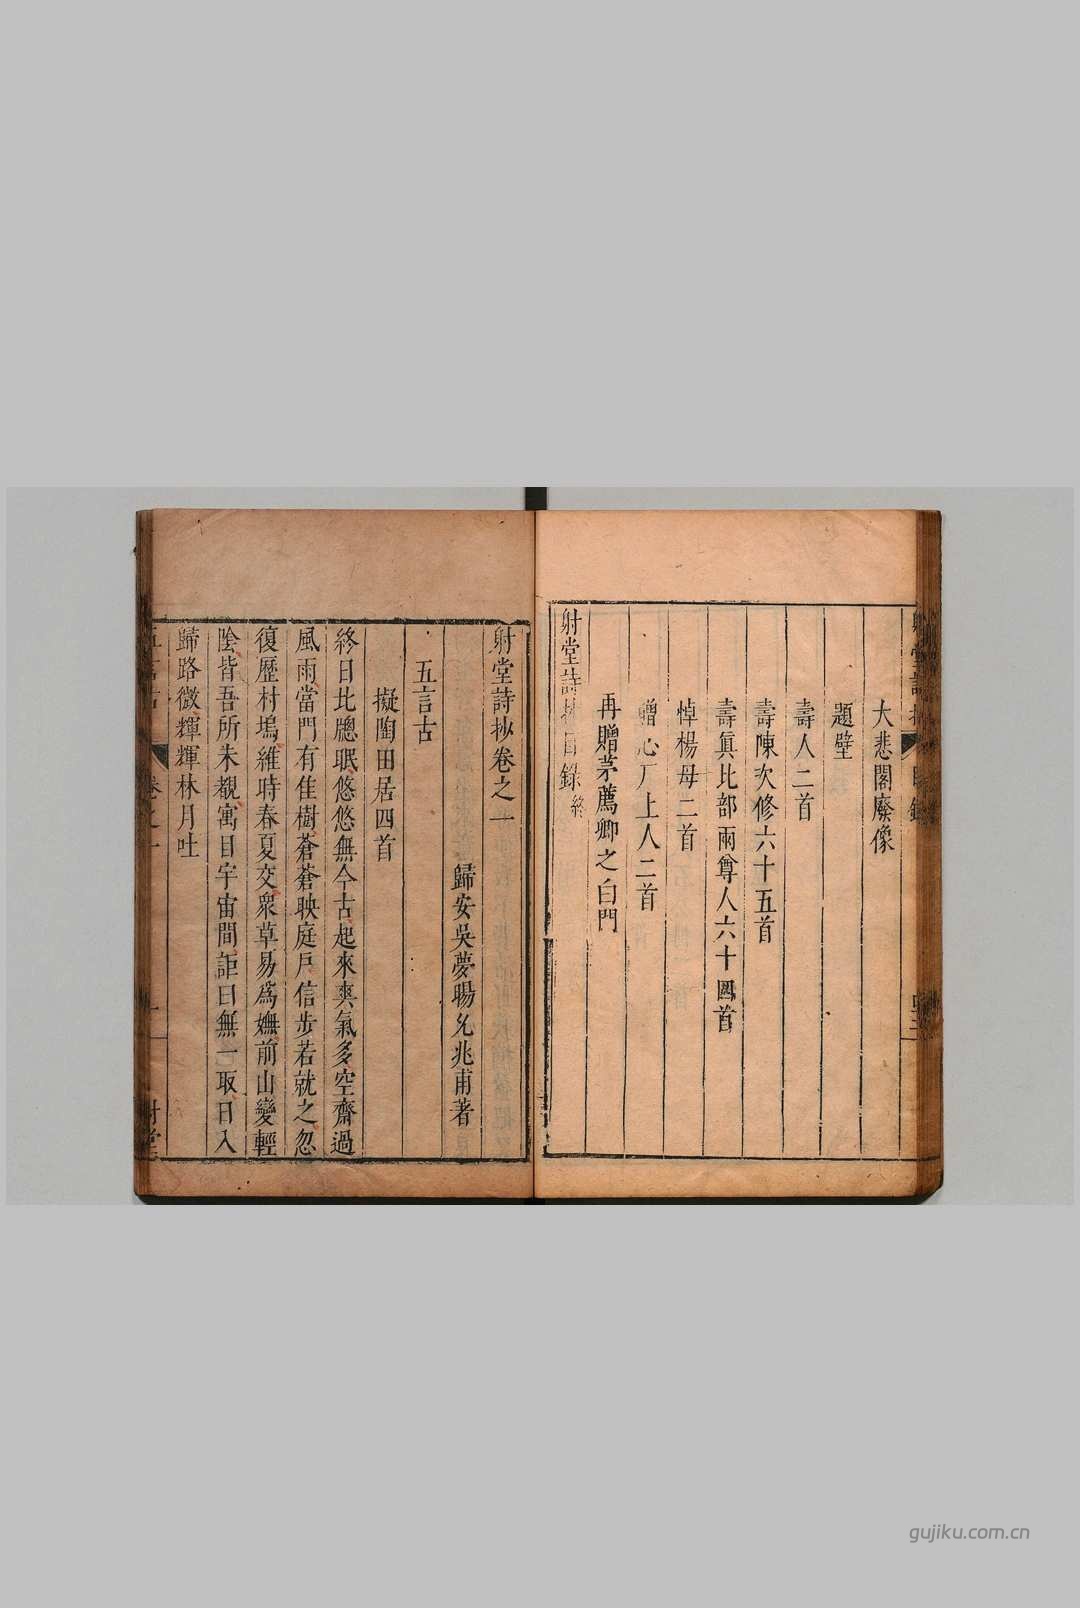 大悲閣廢像
題壁
壽人二首
壽陳次修六十五首
壽眞比部兩尊人六十四首
悼楊母二首
贈心厂上人二首
再贈茅薦卿之白門
射堂詩抄目錄終
射堂詩抄卷之一
歸安吳夢暘允兆甫著
五言古
擬陶田居四首
終日北牕眠悠悠無今古起來爽氣多空齋過
風雨當門有佳樹蒼蒼映庭戶信步若就之忽
復歷村塢維時春夏交衆草易爲嫵前山變輕
陰皆吾所未覩寓目宇宙間詎曰無一取日入
歸路微輝輝林月吐
卷之一
射堂
gujiku.com.cn